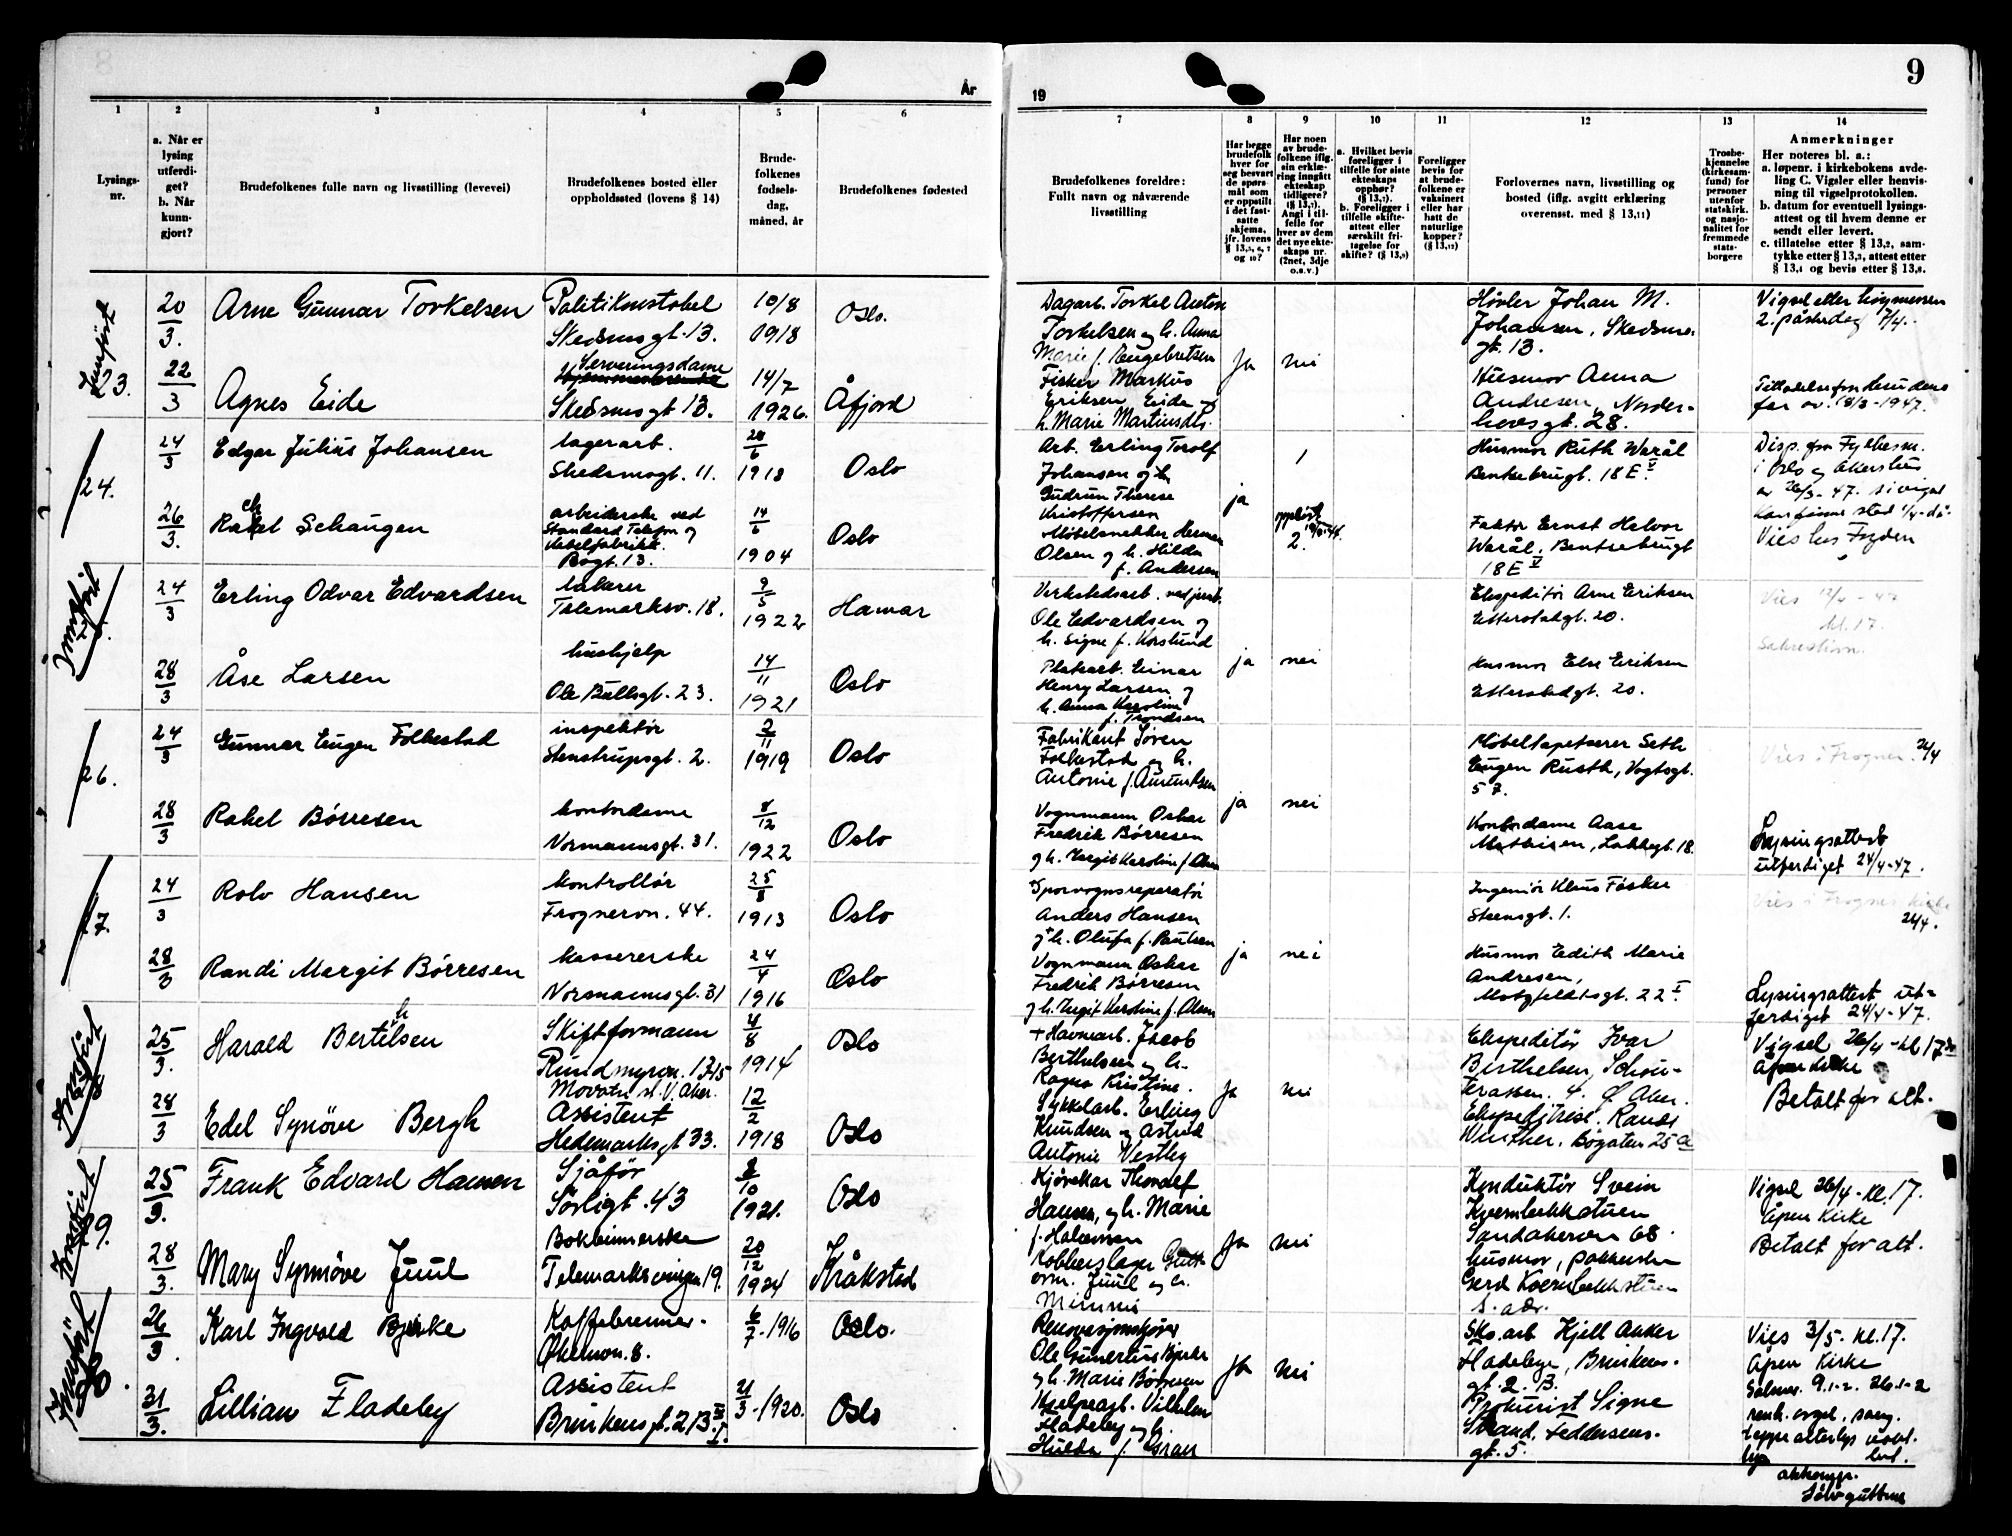 9
År
19
1
2
3
4
5
6
7
8
9
10
11
12
13
14
Lysings-
nr.
a. Når er
lysing
utferdi-
get?
b. Når
kunn-
gjort?
Brudefolkenes fulle navn og livsstilling (levevei)
Brudefolkenes bosted eller
oppholdssted (lovens § 14)
Brude-
folkenes
fødsels-
dag,
måned, år
Brudefolkenes fødested
Brudefolkenes foreldre:
Fullt navn og nåværende
livsstilling
Har begge
brudefolk
hver for
seg besvart
de spørs-
mål som
er oppstilt
i det fast-
satte
skjema,
jfr. lovens
og 10?
Har noen
av brude-
folkene iflg.
sin erklæ-
ring inngått
ekteskap
tidligere?
Angi i til-
felle for
hver av dem
det nye ekte-
skaps nr.
(2net, 3dje
o.s.v.)
a. Hvilket bevis
foreligger i
tilfelle for siste
ekteskaps
opphør?
b. Foreligger i
tilfelle skifte-
attest eller
særskilt fri-
tagelse for
skifte?
Foreligger
bevis for
at brude-
folkene er
vaksinert
eller har
hatt de
naturlige
kopper?
Forlovernes navn, livsstilling og
bosted (iflg. avgitt erklæring
overensst. med § 13,11)
Trosbe-
kjennelse
(kirkesam-
fund) for
personer
utenfor
statskirk.
og nasjo-
nalitet for
fremmede
stats-
borgere
Anmerkninger
Her noteres bl. a.:
a. løpenr. i kirkebokens avde-
ling C. Vigsler eller henvis-
ning til vigselprotokollen.
b. datum for eventuell lysings-
attest og til hvem denne er
sendt eller levert.
c. tillatelse etter § 13,2, sam-
tykke etter § 13,3, attest etter
§ 13,4 og bevis etter § 13,8.
23.
20/3.
Arne Gunnar Torkelsen
Politikonstabel
Skedsmogt. 13.
10/8
1918
Oslo.
Dagarb. Torkel Anton
Torkelsen og h. Anna
Marie f. Engebretsen
Ja
nei
Høvler Johan M.
Johansen, Skedsmo-
gt. 13.
Vigsel etter høymessen
2. påskedag 7/4.
22/3
Agnes Eide
Serveringsdame
Skedsmogt 13.
14/7
1926.
Åfjord
Fisker Markus
Eriksen Eide og
h. Marie Martinsdt.
Husmor Anna
Andresen, Norder-
hovsgt. 28.
18/3-1947.
24.
24/3
Edgar Julius Johansen
lagerarb.
Skedsmogt. 11.
28/6
1918
Oslo
Arb. Erling Torolf
Johansen og h.
Gudrun Therese
Kristoffersen
ja
1
Husmor Ruth Warål
Bentsebrugt. 18 E V.
Disp. fra Fylkesm.
i Oslo og Akershus
av 26/3-47.
26/3.
Rakel Schaugen
arbeiderske ved
Standard Telefon og
Kabelfabrikk.
Bogt. 13.
14/6
1904
Oslo
Møbelsnekker Herman
Olsen og h. Hilda
f. Andersen
2.
Faktor Ernst Halvor
Warål, Bentsebrugt
18 E V
Vies hos Fryden
24/3
Erling Odvar Edvardsen
takarer
Telemarksv. 18.
9/5
1922
Hamar
Verkstedsarb. ved jernb.
Ole Edvardsen og
h. Signe f. Korslund
ja
nei
Ekspeditør Arne Eriksen
Etterstadgt. 20.
Vies 12/4-47
kl. 17.
Sakrestien.
28/3
Åse Larsen
hushjelp
Ole Bullsgt. 23.
14/11
1921
Oslo
Platearb. Einar
Henry Larsen og
h. Anna Karoline
f. Trondsen
Husmor Else Eriksen
Etterstadgt. 20.
26.
24/3
Gunnar Eugen Folkestad
inspektør
Stenstrupsgt. 2.
2/11
1919
Oslo
Fabrikant Søren
Folkestad og h.
Antonie f. Amundsen
ja
nei
Møbeltapetserer Seth
Eugen Rusth, Vogtsgt.
57.
Vies i Frogner. 26/4
28/3
Rakel Børresen
kontordame
Normannsgt. 31.
8/12
1922
Oslo
Vognmann Oskar
Fredrik Børresen
og h. Margit Karoline f. Olsen
Kontordame Aase
Mathisen, Lakkegt. 18.
Lysingsattest
utferdiget 24/4-47.
7.
24/3
Rolv Hansen
kontrollør
Frognervn. 44.
25/8
1913
Oslo
Sporvognsreparatør
Anders Hansen
+ h. Olufa f. Paulsen
ja
nei
Ingeniør Klaus Fosker
Steensgt. 1.
Vies i Frogner kirke
26/4.
28/3
Randi Margit Børresen
kassererske
Normannsgt. 31
24/4
1916
Oslo
Vognmann Oskar
Fredrik Børresen
og h. Margit Karoline f. Olsen
Husmor Edith Marie
Andresen,
Motzfeldtsgt. 22 I.
Lysingsattest ut-
ferdiget 24/4-47.
25/3.
Harald Berthelsen
Skiftformann
Rundmyrvn. 13-15
4/8
1914
Oslo
+ Havnearb. Jacob
Berthelsen og h.
Ragna Kristine.
Ja
nei
Ekspeditør Ivar
Berthelsen, Schou-
terassen 4. Ø. Aker.
Vigsel 26/4-kl 17
Åpen kirke
Betalt for alt.
28/3
Edel Synøve Bergh
Assistent
Hedemarksgt 33.
12/2
1918
Oslo
Sykkelarb. Erling
Knudsen og Astrid
Antonie Vestby
Ekspeditrise. Randi
Winther, Bøgaten 25 a
9.
25/3.
Frank Edvard Hansen
Sjåfør
Sørligt. 43
8/10
1921.
Oslo
Kjørekar Thoralf
Hansen, og h. Marie
f. Halvorsen
Ja
nei
Konduktør Svein
Kvernbekkstuen
Sandakervn 68.
Vigsel 26/4-kl. 17.
Åpen kirke
Betalt for alt.
28/3.
Mary Synnøve Juul
Bokbinnerske
Telemarksvingen 19.
20/12
1924
Kråkstad
Kobberslager Gutt-
orm Juul og h.
Minnie
husmor, pakkerske
Gerd Kvernbekkstuen
s. adr.
26/3.
Karl Ingvald Bjerke
Kaffebrenner.
Økernvn. 8.
6/7-1916
Oslo.
Renovasjonskjører
Ole Gunerius Bjerke
og h. Marie Børresen
Ja
nei
Sko.arb Kjell Anker
Fladeby, Brinkens-
gt. 2. B.
Vies 3/5. kl. 17.
Åpen kirke
31/3.
Lillian Fladeby
Assistent
Brinkensgt. 2 B
21/3-1920.
Oslo
Hjelpearb. Vilhelm
Fladeby og h.
Hulda f. Gran
Prokurist Signe
Strand, Feddersens-
gt. 5.
Sølvguttene